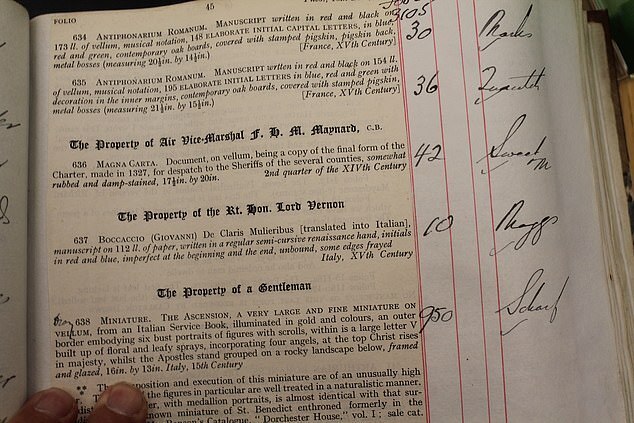 45
FOLIO
634 ANTIPHONARIUM ROMANUM. MANUSCRIPT written in red and black on
173 ll. of vellum, musical notation, 148 ELABORATE INITIAL CAPITAL LETTERS, in blue,
red and green, contemporary oak boards, covered with stamped pigskin, pigskin back,
metal bosses (measuring 20½in. by 14½in.) [France, XVth Century]
30
635 ANTIPHONARIUM ROMANUM. MANUSCRIPT written in red and black on 154 ll.
of vellum, musical notation, 195 ELABORATE INITIAL LETTERS in blue, red and green with
decoration in the inner margins, contemporary oak boards, covered with stamped pigskin,
metal bosses (measuring 21½in. by 15½in.) [France, XVth Century]
36
The Property of Air Vice-Marshal F. H. M. Maynard, C.B.
636 MAGNA CARTA. Document, on vellum, being a copy of the final form of the
Charter, made in 1327, for despatch to the Sheriffs of the several counties, somewhat
rubbed and damp-stained, 17½in. by 20in. 2nd quarter of the XIVth Century
42 Sweet
The Property of the Rt. Hon. Lord Vernon
637 BOCCACCIO (GIOVANNI) De Claris Mulieribus [translated into Italian],
manuscript on 112 ll. of paper, written in a regular semi-cursive renaissance hand, initials
in red and blue, imperfect at the beginning and the end, unbound, some edges frayed
Italy, XVth Century
10 Maggs
The Property of a Gentleman
638 MINIATURE. THE ASCENSION, A VERY LARGE AND FINE MINIATURE ON
VELLUM, from an Italian Service Book, illuminated in gold and colours, an outer
border embodying six bust portraits of figures with scrolls, within is a large letter V
built up of floral and leafy sprays, incorporating four angels, at the top Christ rises
in majesty, whilst the Apostles stand grouped on a rocky landscape below, framed
and glazed, 16in. by 13in. Italy, 15th Century
950
*** The composition and execution of this miniature are of an unusually high
the figures in particular are well treated in a naturalistic manner.
with medallion portraits, is almost identical with that sur-
miniature of St. Benedict enthroned formerly in the
Catalogue, "Dorchester House," vol. I; sale cat.